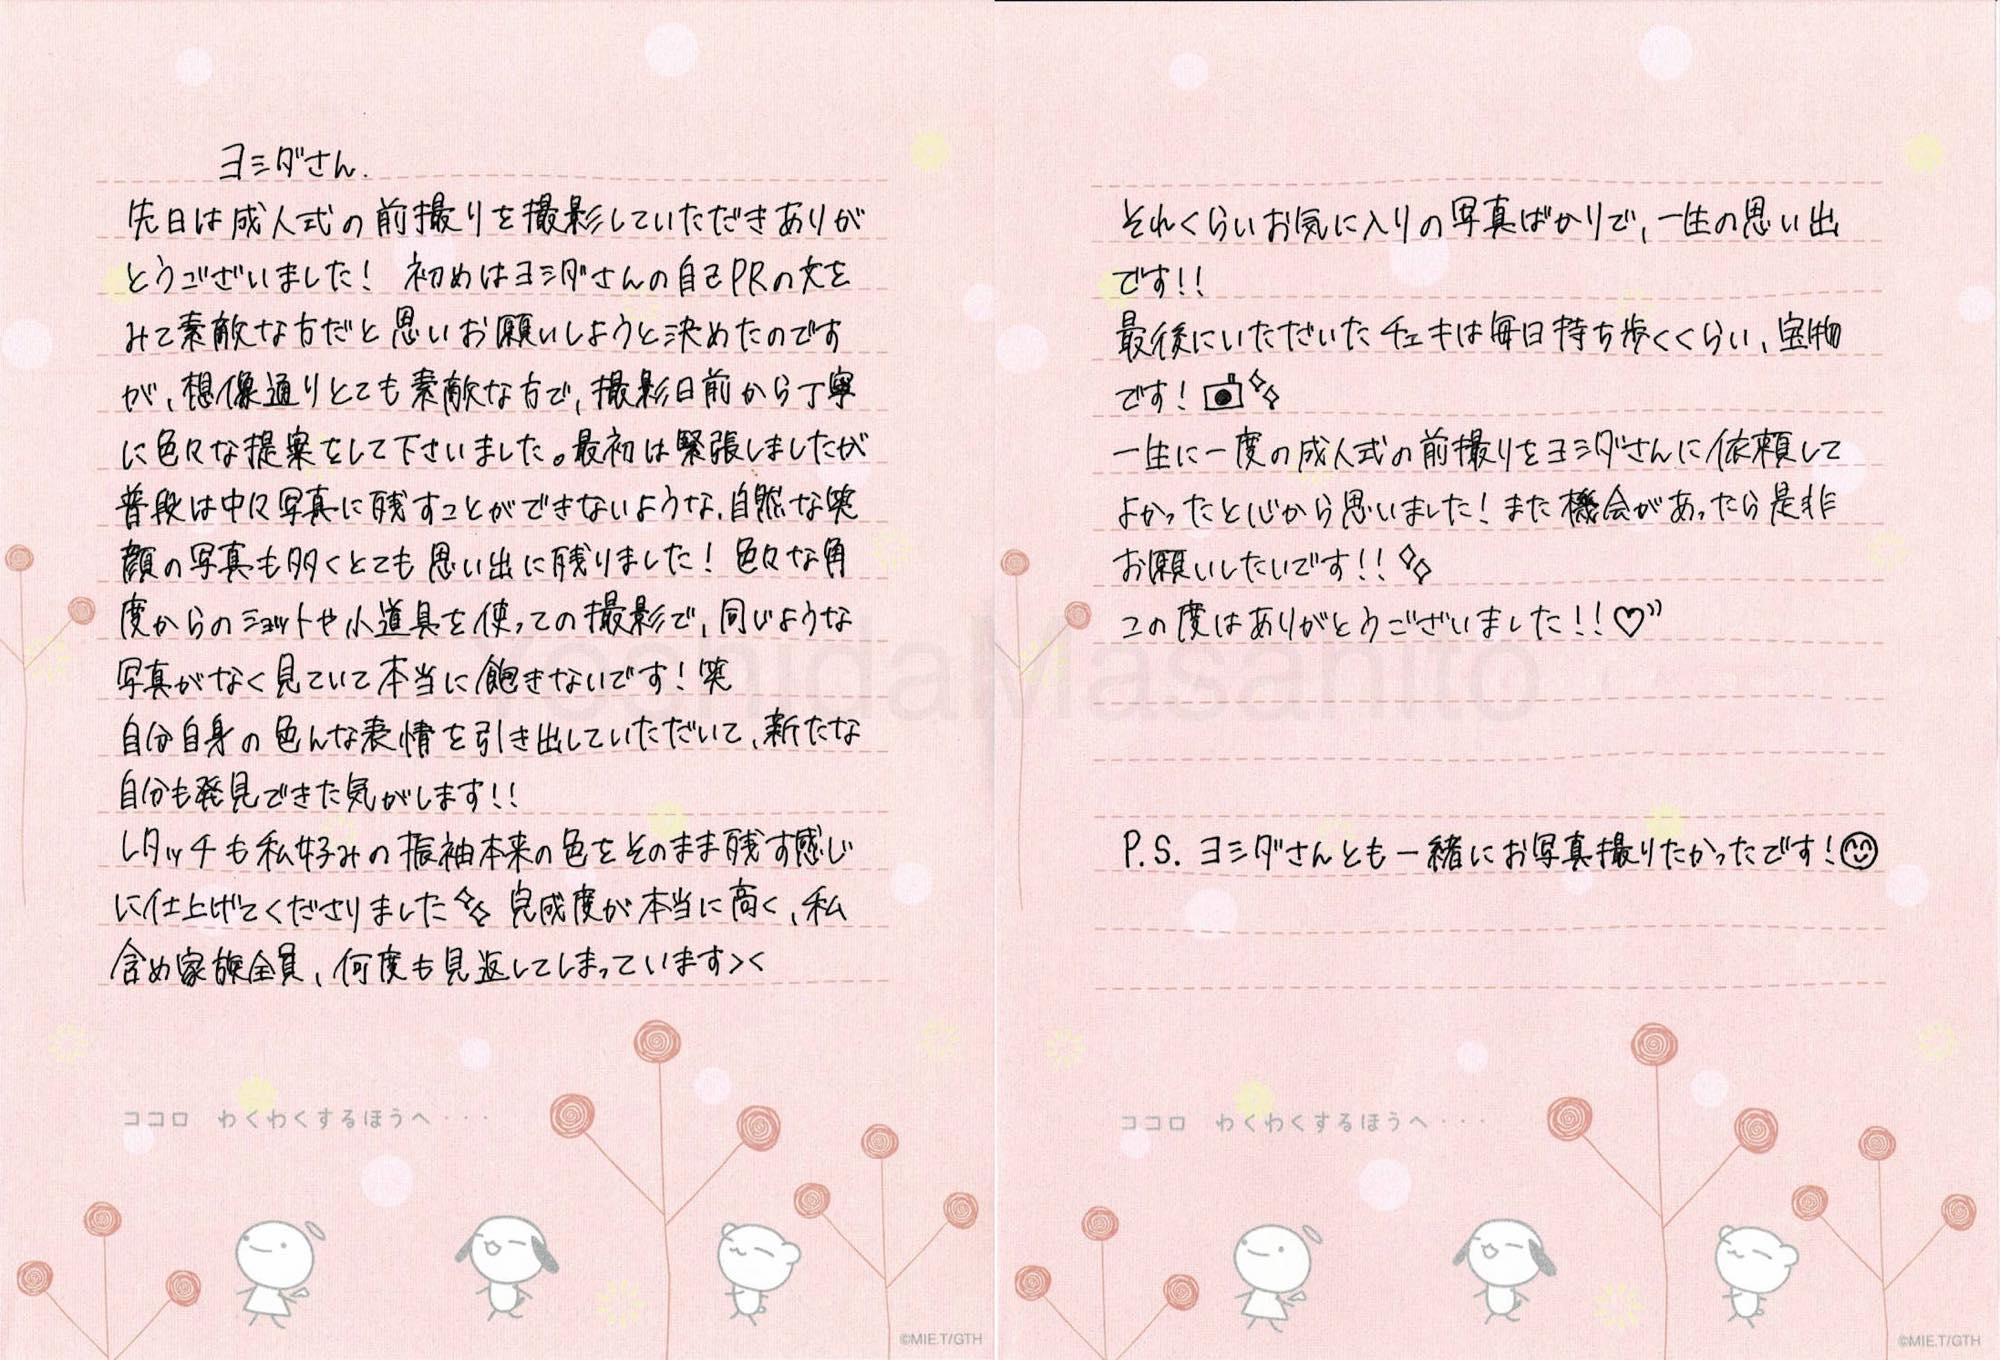 ヨシダさん.
先日は成人式の前撮りを撮影していただきありが
とうございました! 初めはヨシダさんの自己PRの文を
みて素敵な方だと思いお願いしようと決めたのです
が、想像通りとても素敵な方で、撮影日前から丁寧
に色々な提案をして下さいました。最初は緊張しましたが
普段は中々写真に残すことができないような、自然な笑
顔の写真も多くとても思い出に残りました! 色々な角
度からのショットや小道具を使っての撮影で、同じような
写真がなく見ていて本当に飽きないです!笑
自分自身の色んな表情を引き出していただいて、新たな
自分も発見できた気がします!!
レタッチも私好みの振袖本来の色をそのまま残す感じ
に仕上げてくださりました 完成度が本当に高く、私
含め家族全員、何度も見返してしまっています><
ココロ わくわくするほうへ・・・
©MIE.T/GTH
それくらいお気に入りの写真ばかりで、一生の思い出
です!!
最後にいただいたチェキは毎日持ち歩くくらい、宝物
です!
一生に一度の成人式の前撮りをヨシダさんに依頼して
よかったと心から思いました!また機会があったら是非
お願いしたいです!!
この度はありがとうございました!!♡
P.S. ヨシダさんとも一緒にお写真撮りたかったです!
ココロ わくわくするほうへ・・・
©MIE.T/GTH
YoshidaMasahito